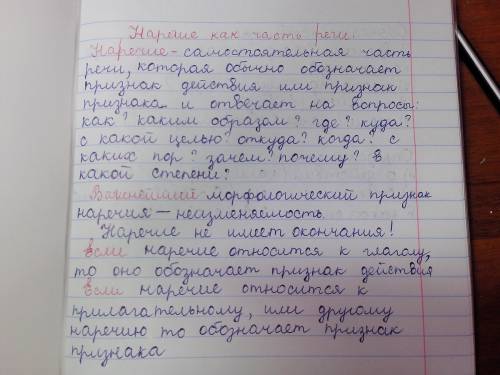 Наречие как часть речи.
Наречие - самостоятельная часть
речи, которая обычно обозначает
признак действия или признак
признака и отвечает на вопросы:
как? каким образом? где? куда?
с какой целью? откуда? когда? с
каких пор? зачем? почему? в
какой степени?
Важнейший морфологический признак
наречия — неизменяемость.
Наречие не имеет окончания!
Если наречие относится к глаголу,
то оно обозначает признак действия
Если наречие относится к
прилагательному, или другому
наречию то обозначает признак
признака